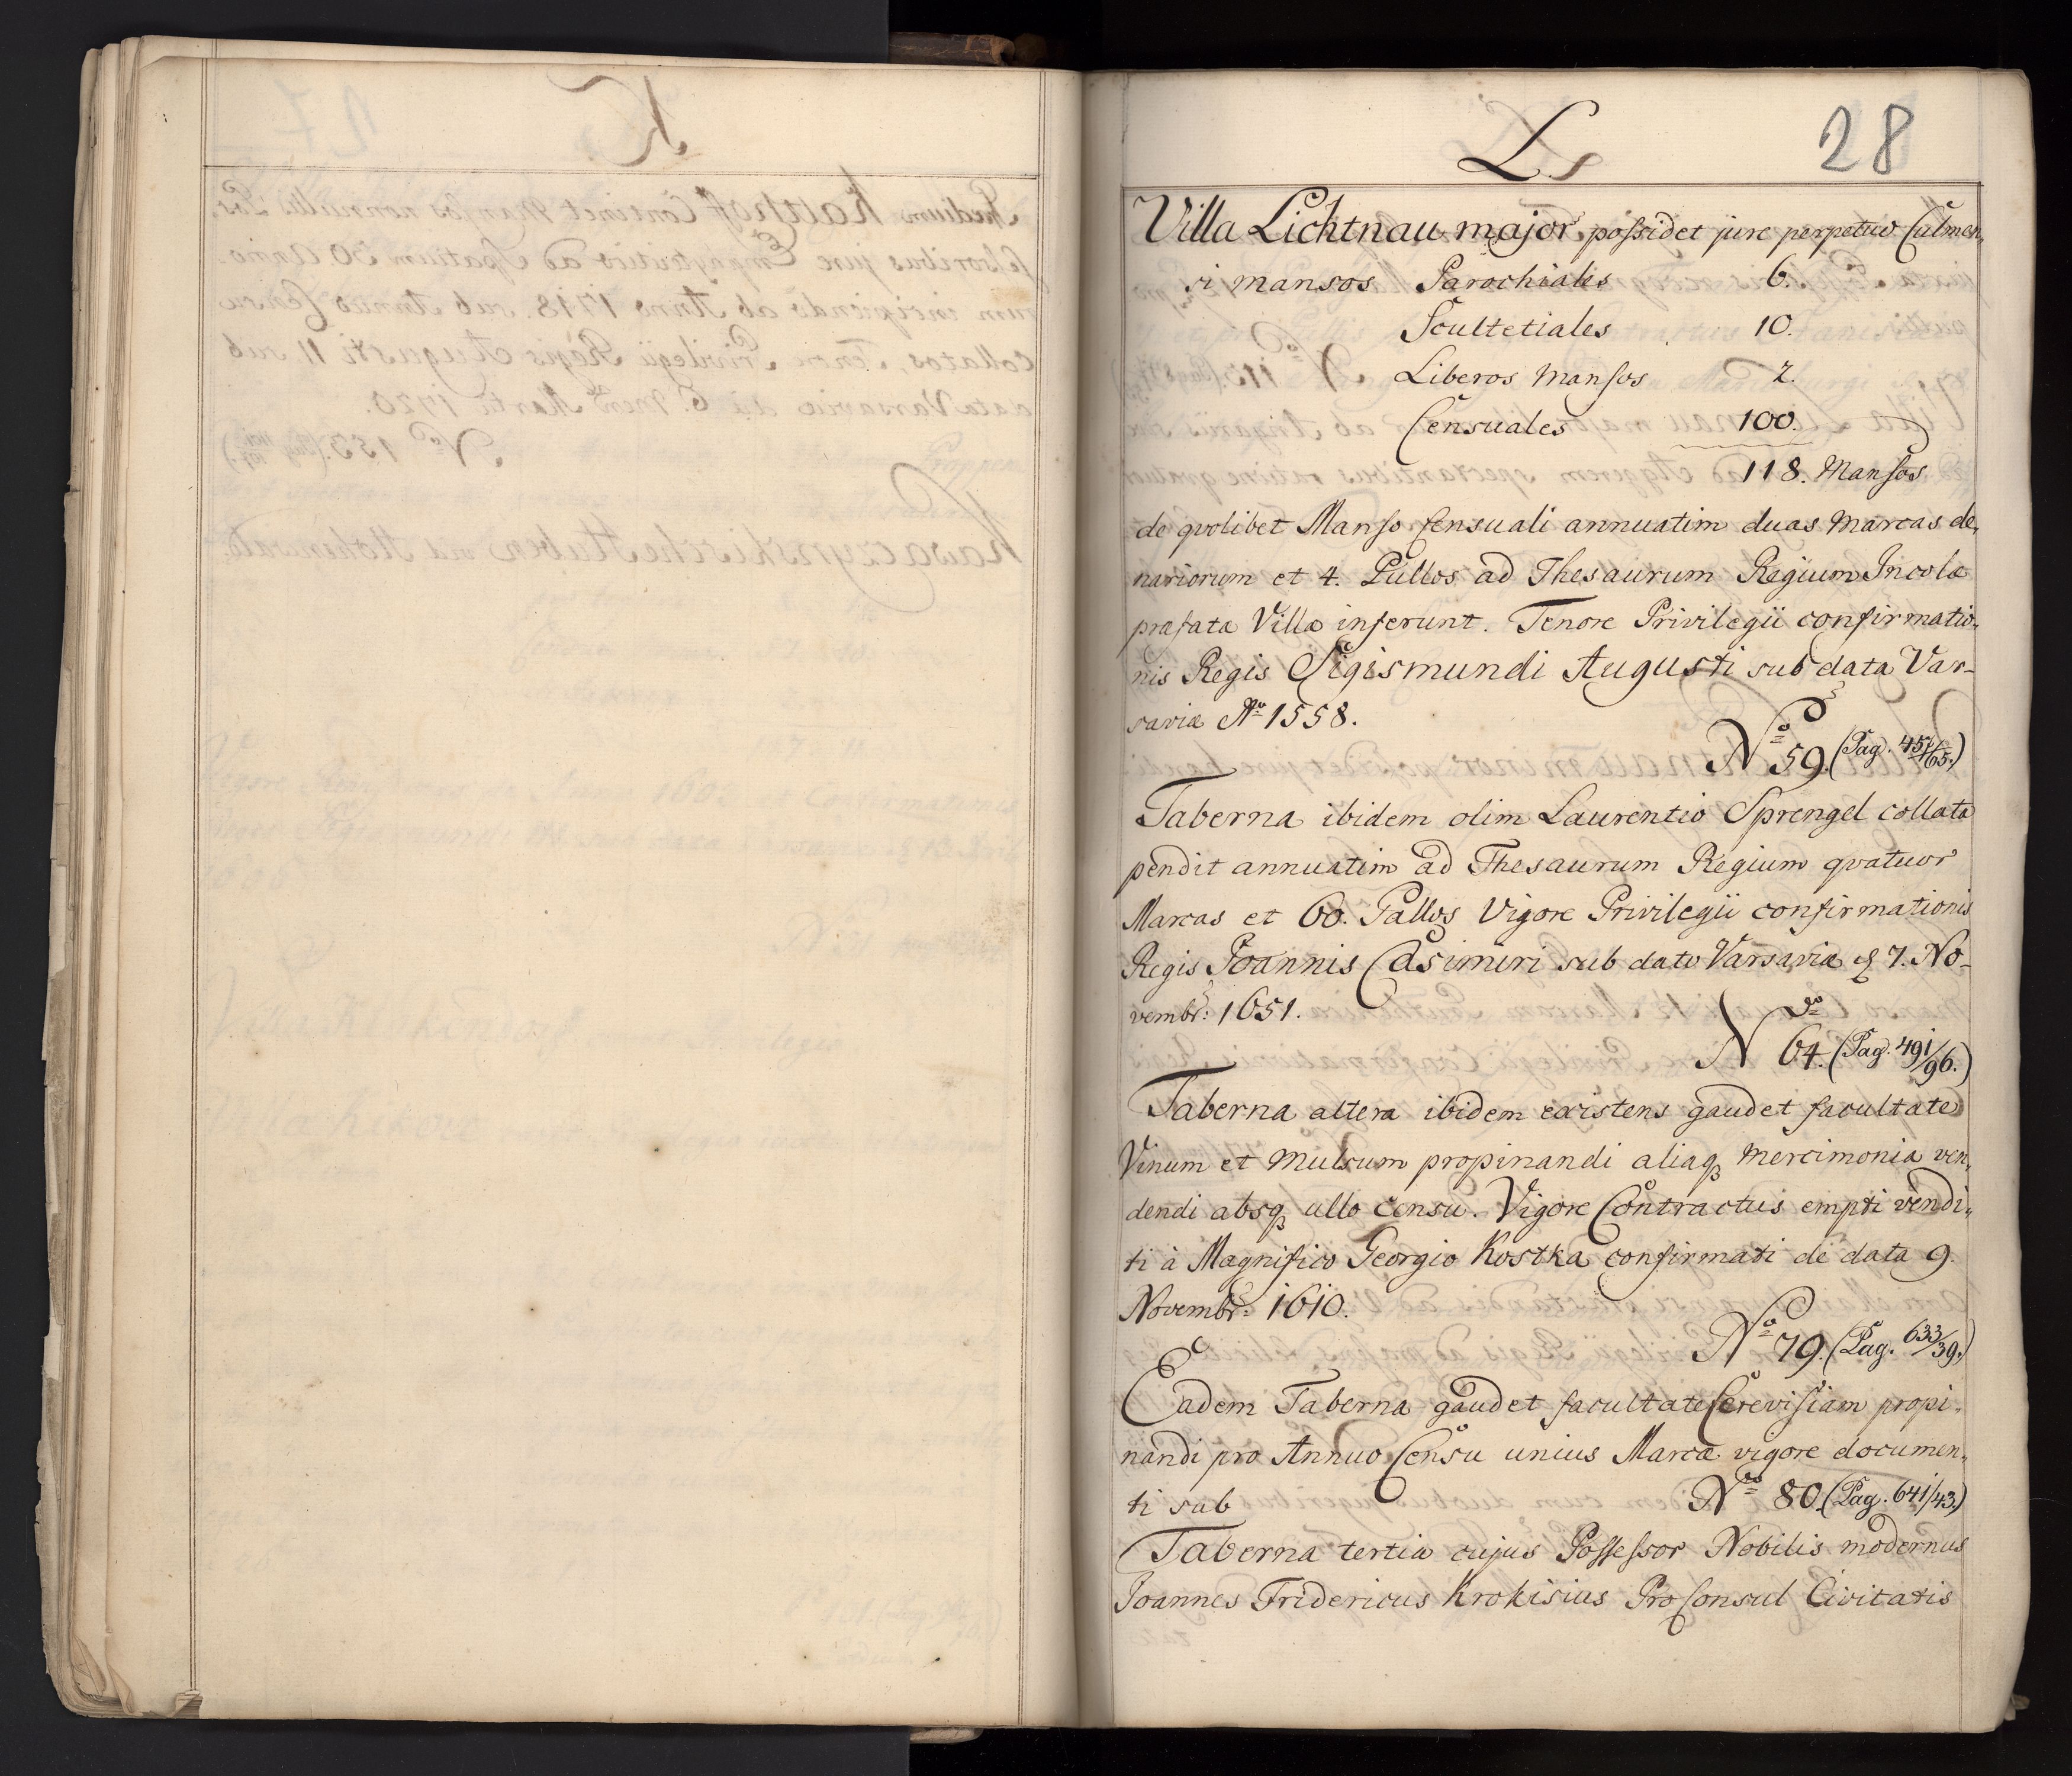 K
L
28
Villa Lichtnau major possidet jure perpetuo Culmen„
si mansos Parochiales 6.
Scultetiales 10.
Liberos Mansos 2.
Censuales 100.
118. Mansos
de qvolibet Manso Censuali annuatim duas Marcas de„
nariorum et 4. Pullos ad Thesaurum Regium Incolæ
præfatæ Villæ inferunt. Tenore Privilegii confirmatio„
nis Regis Sigismundi Augusti sub data Var-
saviæ Aº 1558.
Nº 59. (Pag. 457/65.)
Taberna ibidem olim Laurentio Sprengel collata
pendit annuatim ad Thesaurum Regium qvatuor
Marcas et 60. Gallos Vigore Privilegii confirmationis
Regis Joannis Casimiri sub dato Varsaviæ 7. No-
vembr: 1651.
Nº 64. (Pag. 491/96.)
Taberna altera ibidem existens gaudet facultate
Vinum et Mulsum propinandi aliaq Mercimonia ven„
dendi absq ullo censu. Vigore Contractus empti vendi„
ti à Magnifico Georgio Kostka confirmati de data 9.
Novembr: 1610.
Nº 79. (Pag. 633/39.)
Eadem Taberna gaudet facultate Cerevisiam propi„
nandi pro Annuo Censu unius Marcæ vigore documen„
ti sub Nº 80. (Pag. 641/43.)
Taberna tertia cujus Possessor Nobilis modernus
Joannes Fridericus Krokisius ProConsul Civitatis